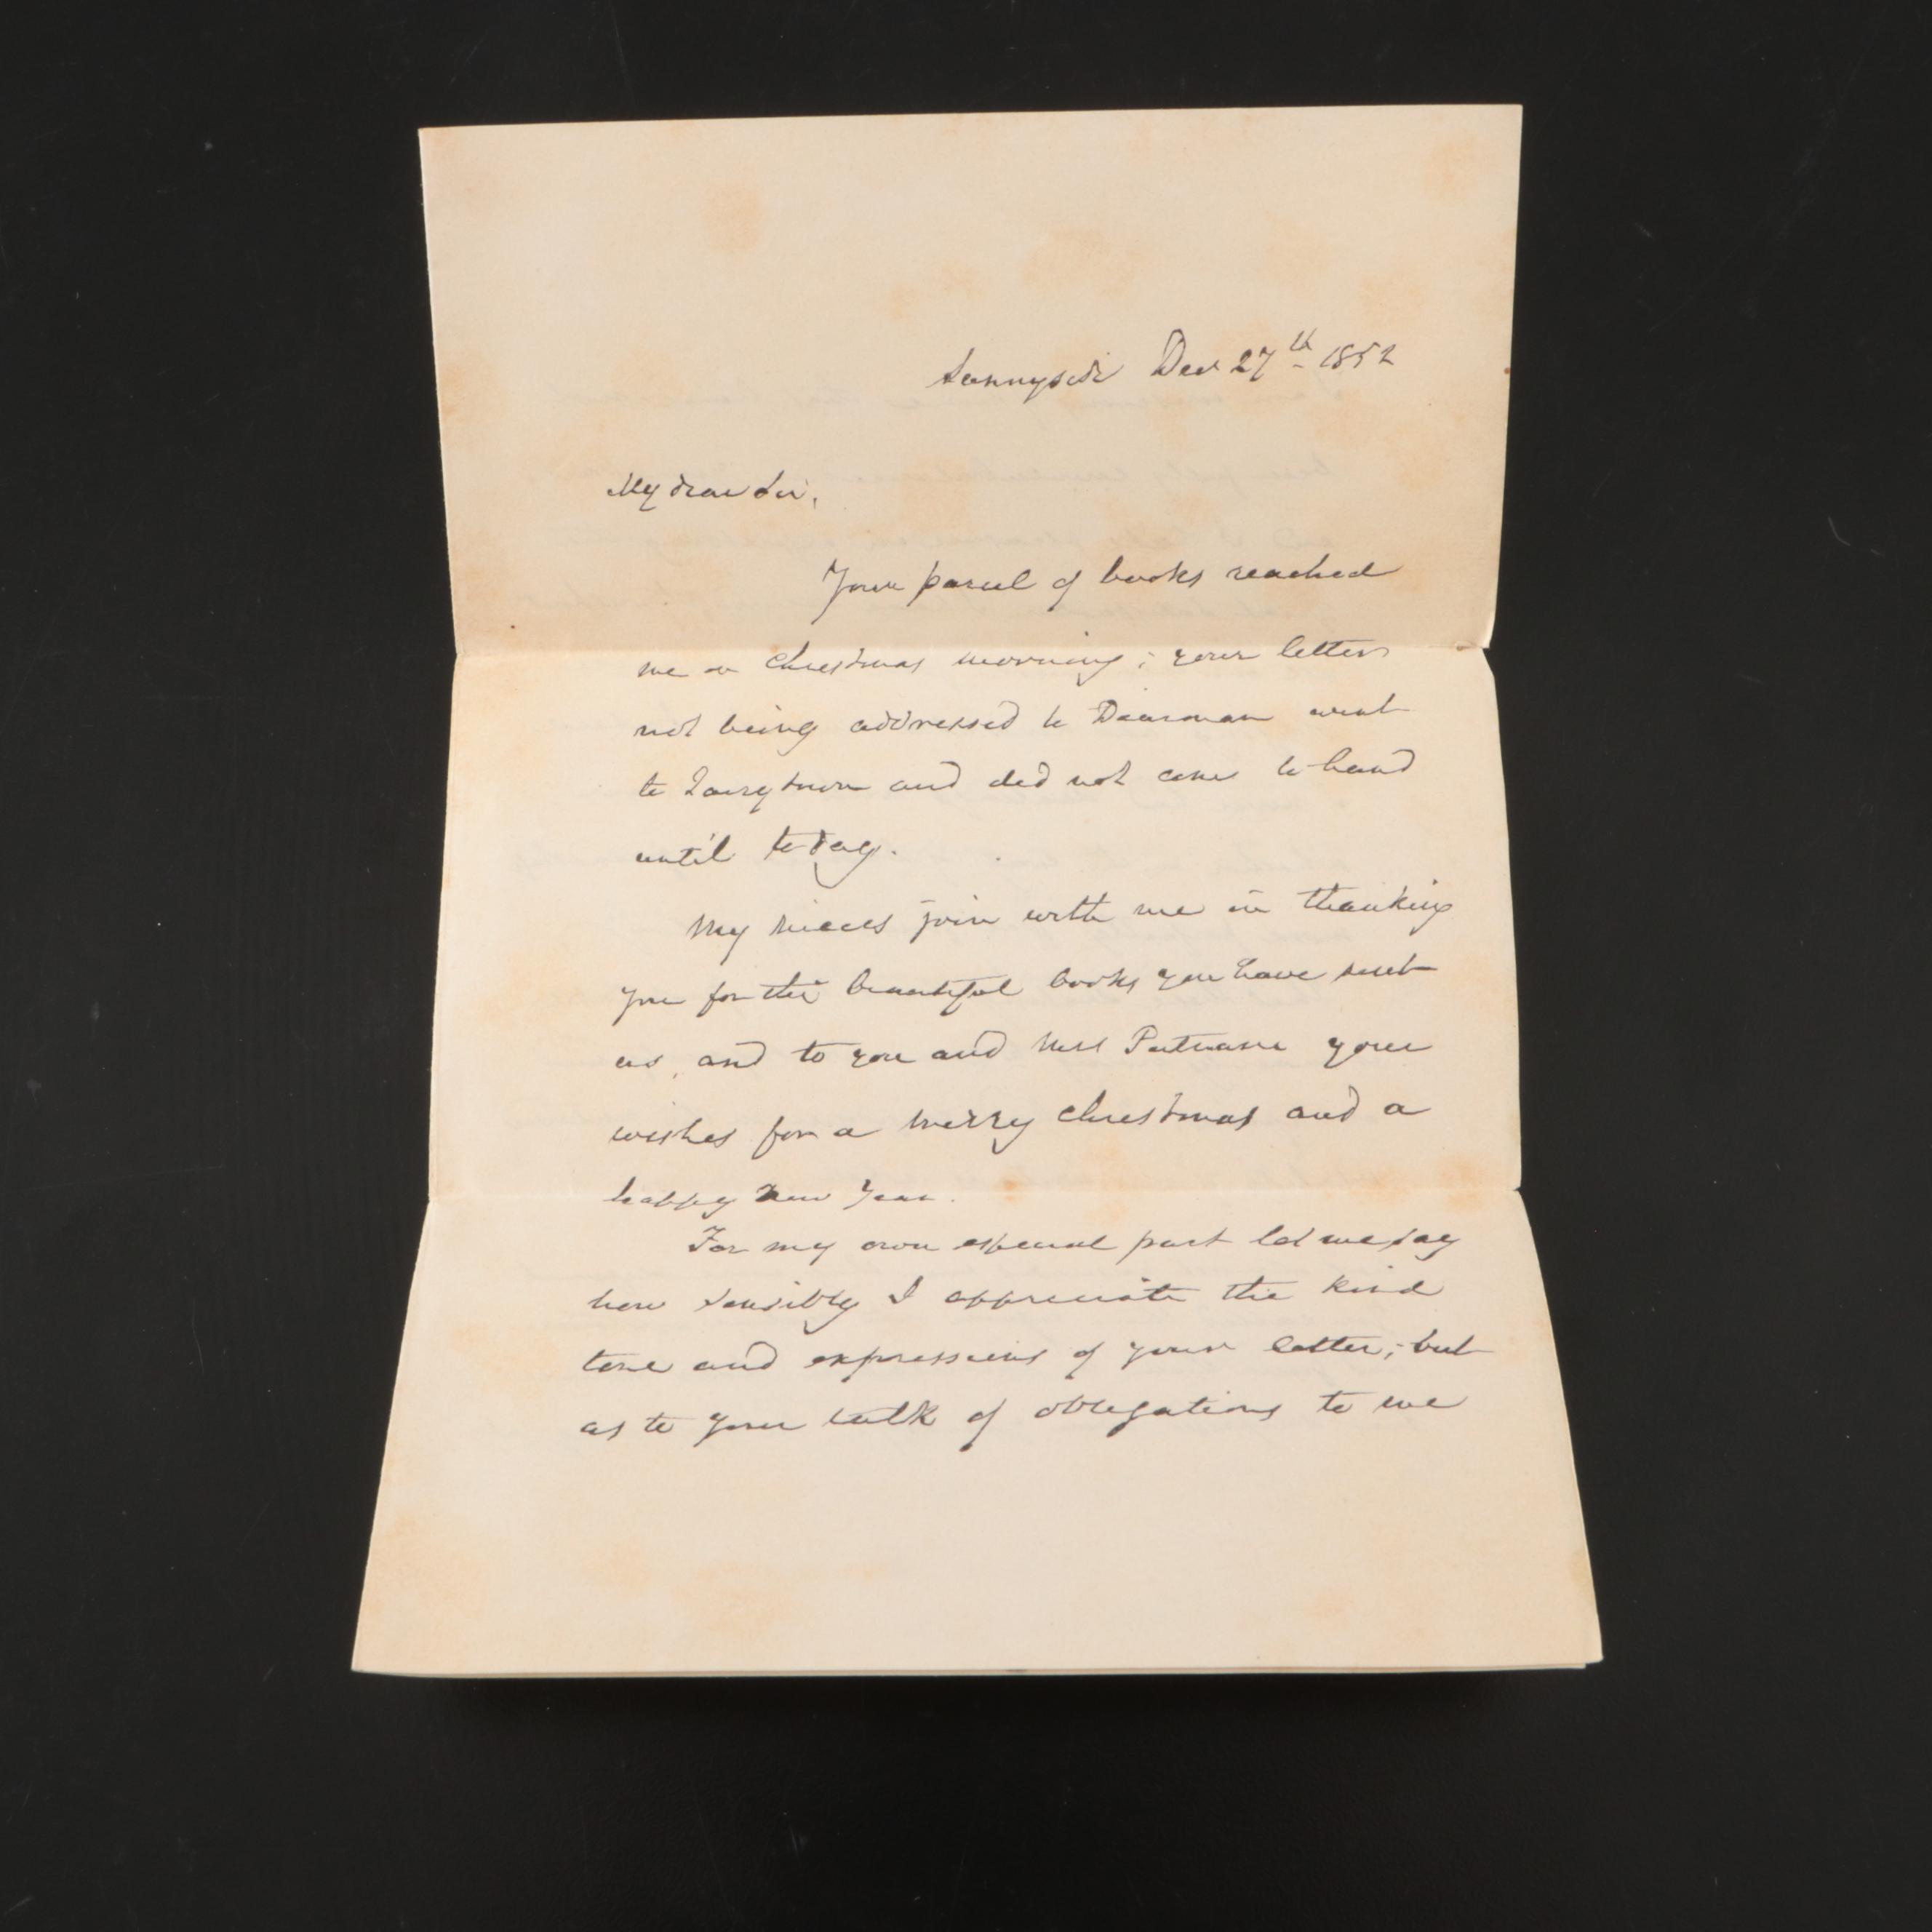 Sunnyside Dec 27th 1852
My dear Sir,
Your parcel of books reached
me on Christmas morning; your letter
not being addressed to Dearman went
to Tarrytown and did not come to hand
until today.
My nieces join with me in thanking
you for the beautiful books you have sent
us, and to you and Mrs Putnam your
wishes for a merry Christmas and a
happy New Year.
For my own especial part let me say
how sensibly I appreciate the kind
tone and expressions of your letter; but
as to your talk of obligations to me